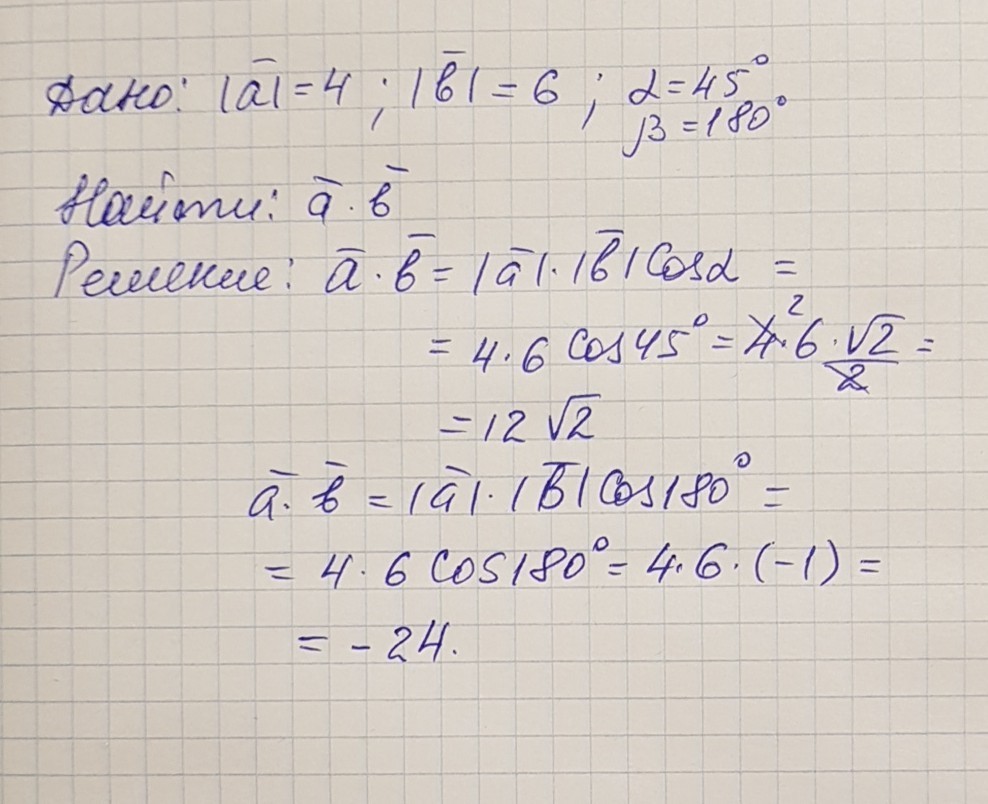 Дано: |a̅|=4 ; |b̅|=6 ; α=45°
β=180°
Найти: a̅·b̅
Решение: a̅·b̅=|a̅|·|b̅|Cosα =
= 4·6 Cos45°=4̸²·6·√2/2̸ =
=12√2
a̅·b̅=|a̅|·|b̅|Cos180°=
= 4·6 Cos180°=4·6·(-1)=
= -24.